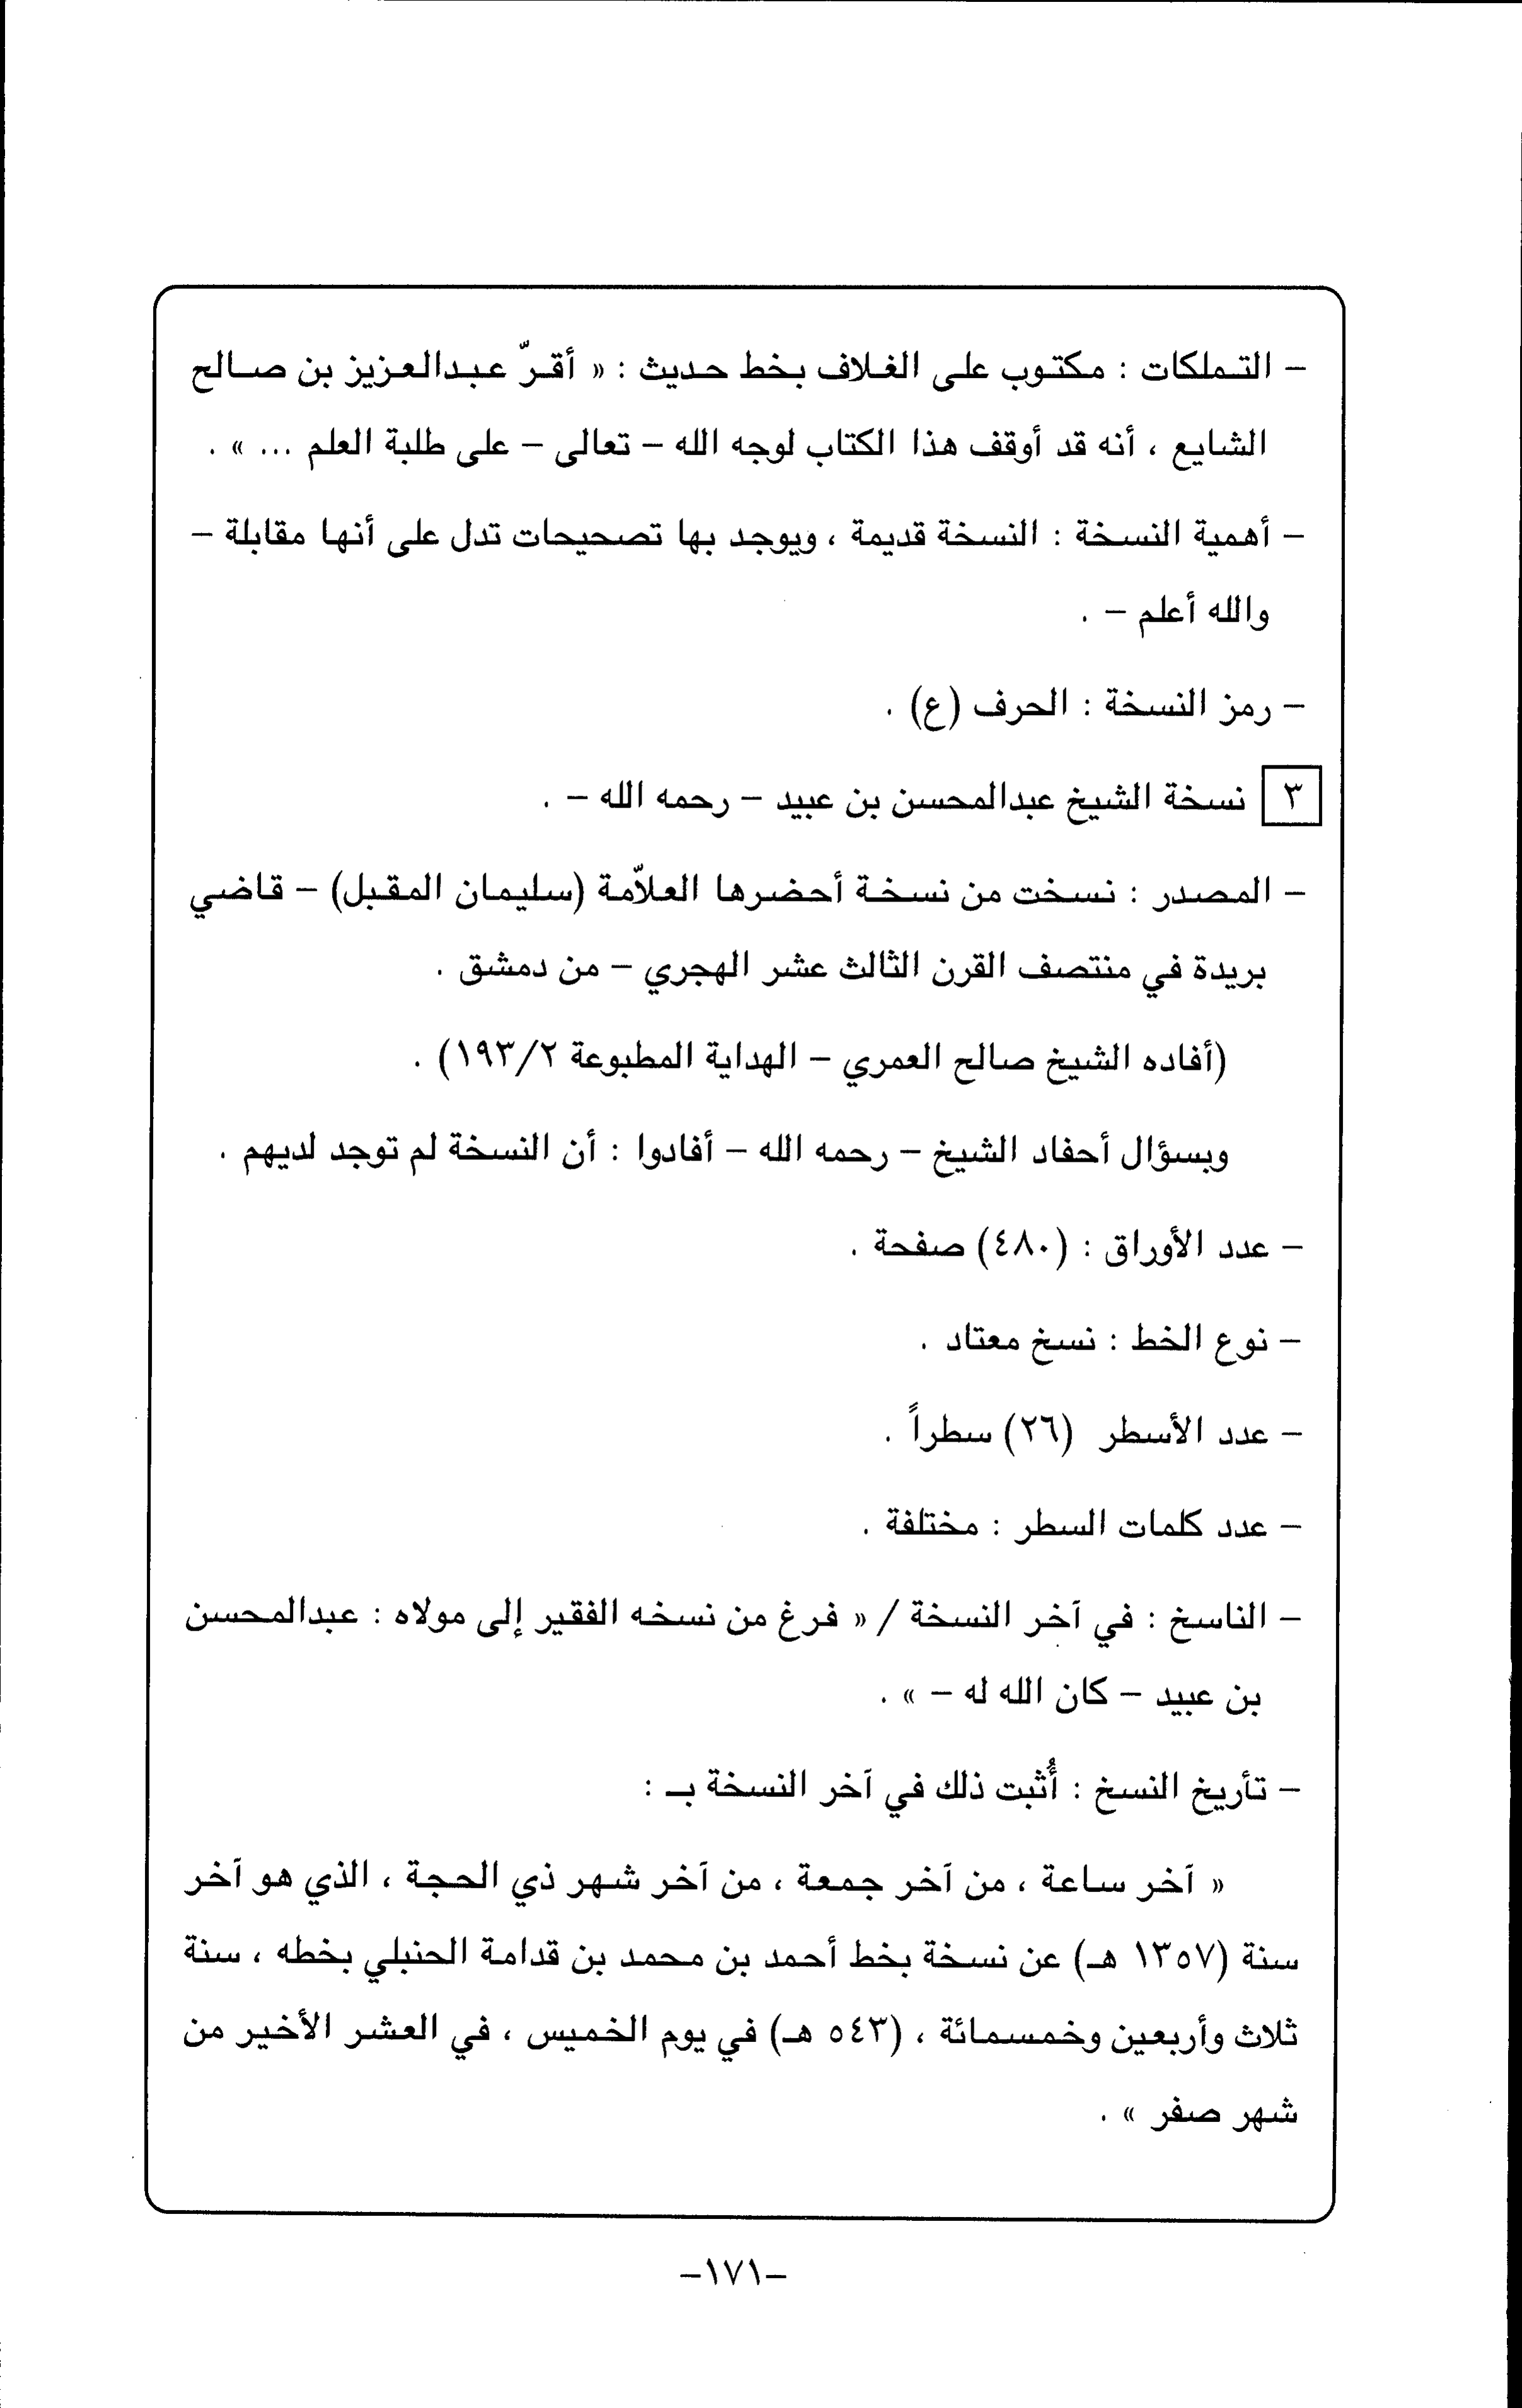 – التملكات : مكتوب على الغلاف بخط حديث : « أقرّ عبدالعزيز بن صالح
الشايع ، أنه قد أوقف هذا الكتاب لوجه الله – تعالى – على طلبة العلم ... » .
– أهمية النسخة : النسخة قديمة ، ويوجد بها تصحيحات تدل على أنها مقابلة –
والله أعلم – .
– رمز النسخة : الحرف (ع) .
٣ نسخة الشيخ عبدالمحسن بن عبيد – رحمه الله – .
– المصدر : نسخت من نسخة أحضرها العلاّمة (سليمان المقبل) – قاضي
بريدة في منتصف القرن الثالث عشر الهجري – من دمشق .
(أفاده الشيخ صالح العمري – الهداية المطبوعة ١٩٣/٢) .
وبسؤال أحفاد الشيخ – رحمه الله – أفادوا : أن النسخة لم توجد لديهم .
– عدد الأوراق : (٤٨٠) صفحة .
– نوع الخط : نسخ معتاد .
– عدد الأسطر (٢٦) سطراً .
– عدد كلمات السطر : مختلفة .
– الناسخ : في آخر النسخة / « فرغ من نسخه الفقير إلى مولاه : عبدالمحسن
بن عبيد – كان الله له – » .
– تأريخ النسخ : أُثبت ذلك في آخر النسخة بـ :
« آخر ساعة ، من آخر جمعة ، من آخر شهر ذي الحجة ، الذي هو آخر
سنة (١٣٥٧ هـ) عن نسخة بخط أحمد بن محمد بن قدامة الحنبلي بخطه ، سنة
ثلاث وأربعين وخمسمائة ، (٥٤٣ هـ) في يوم الخميس ، في العشر الأخير من
شهر صفر » .
–١٧١–